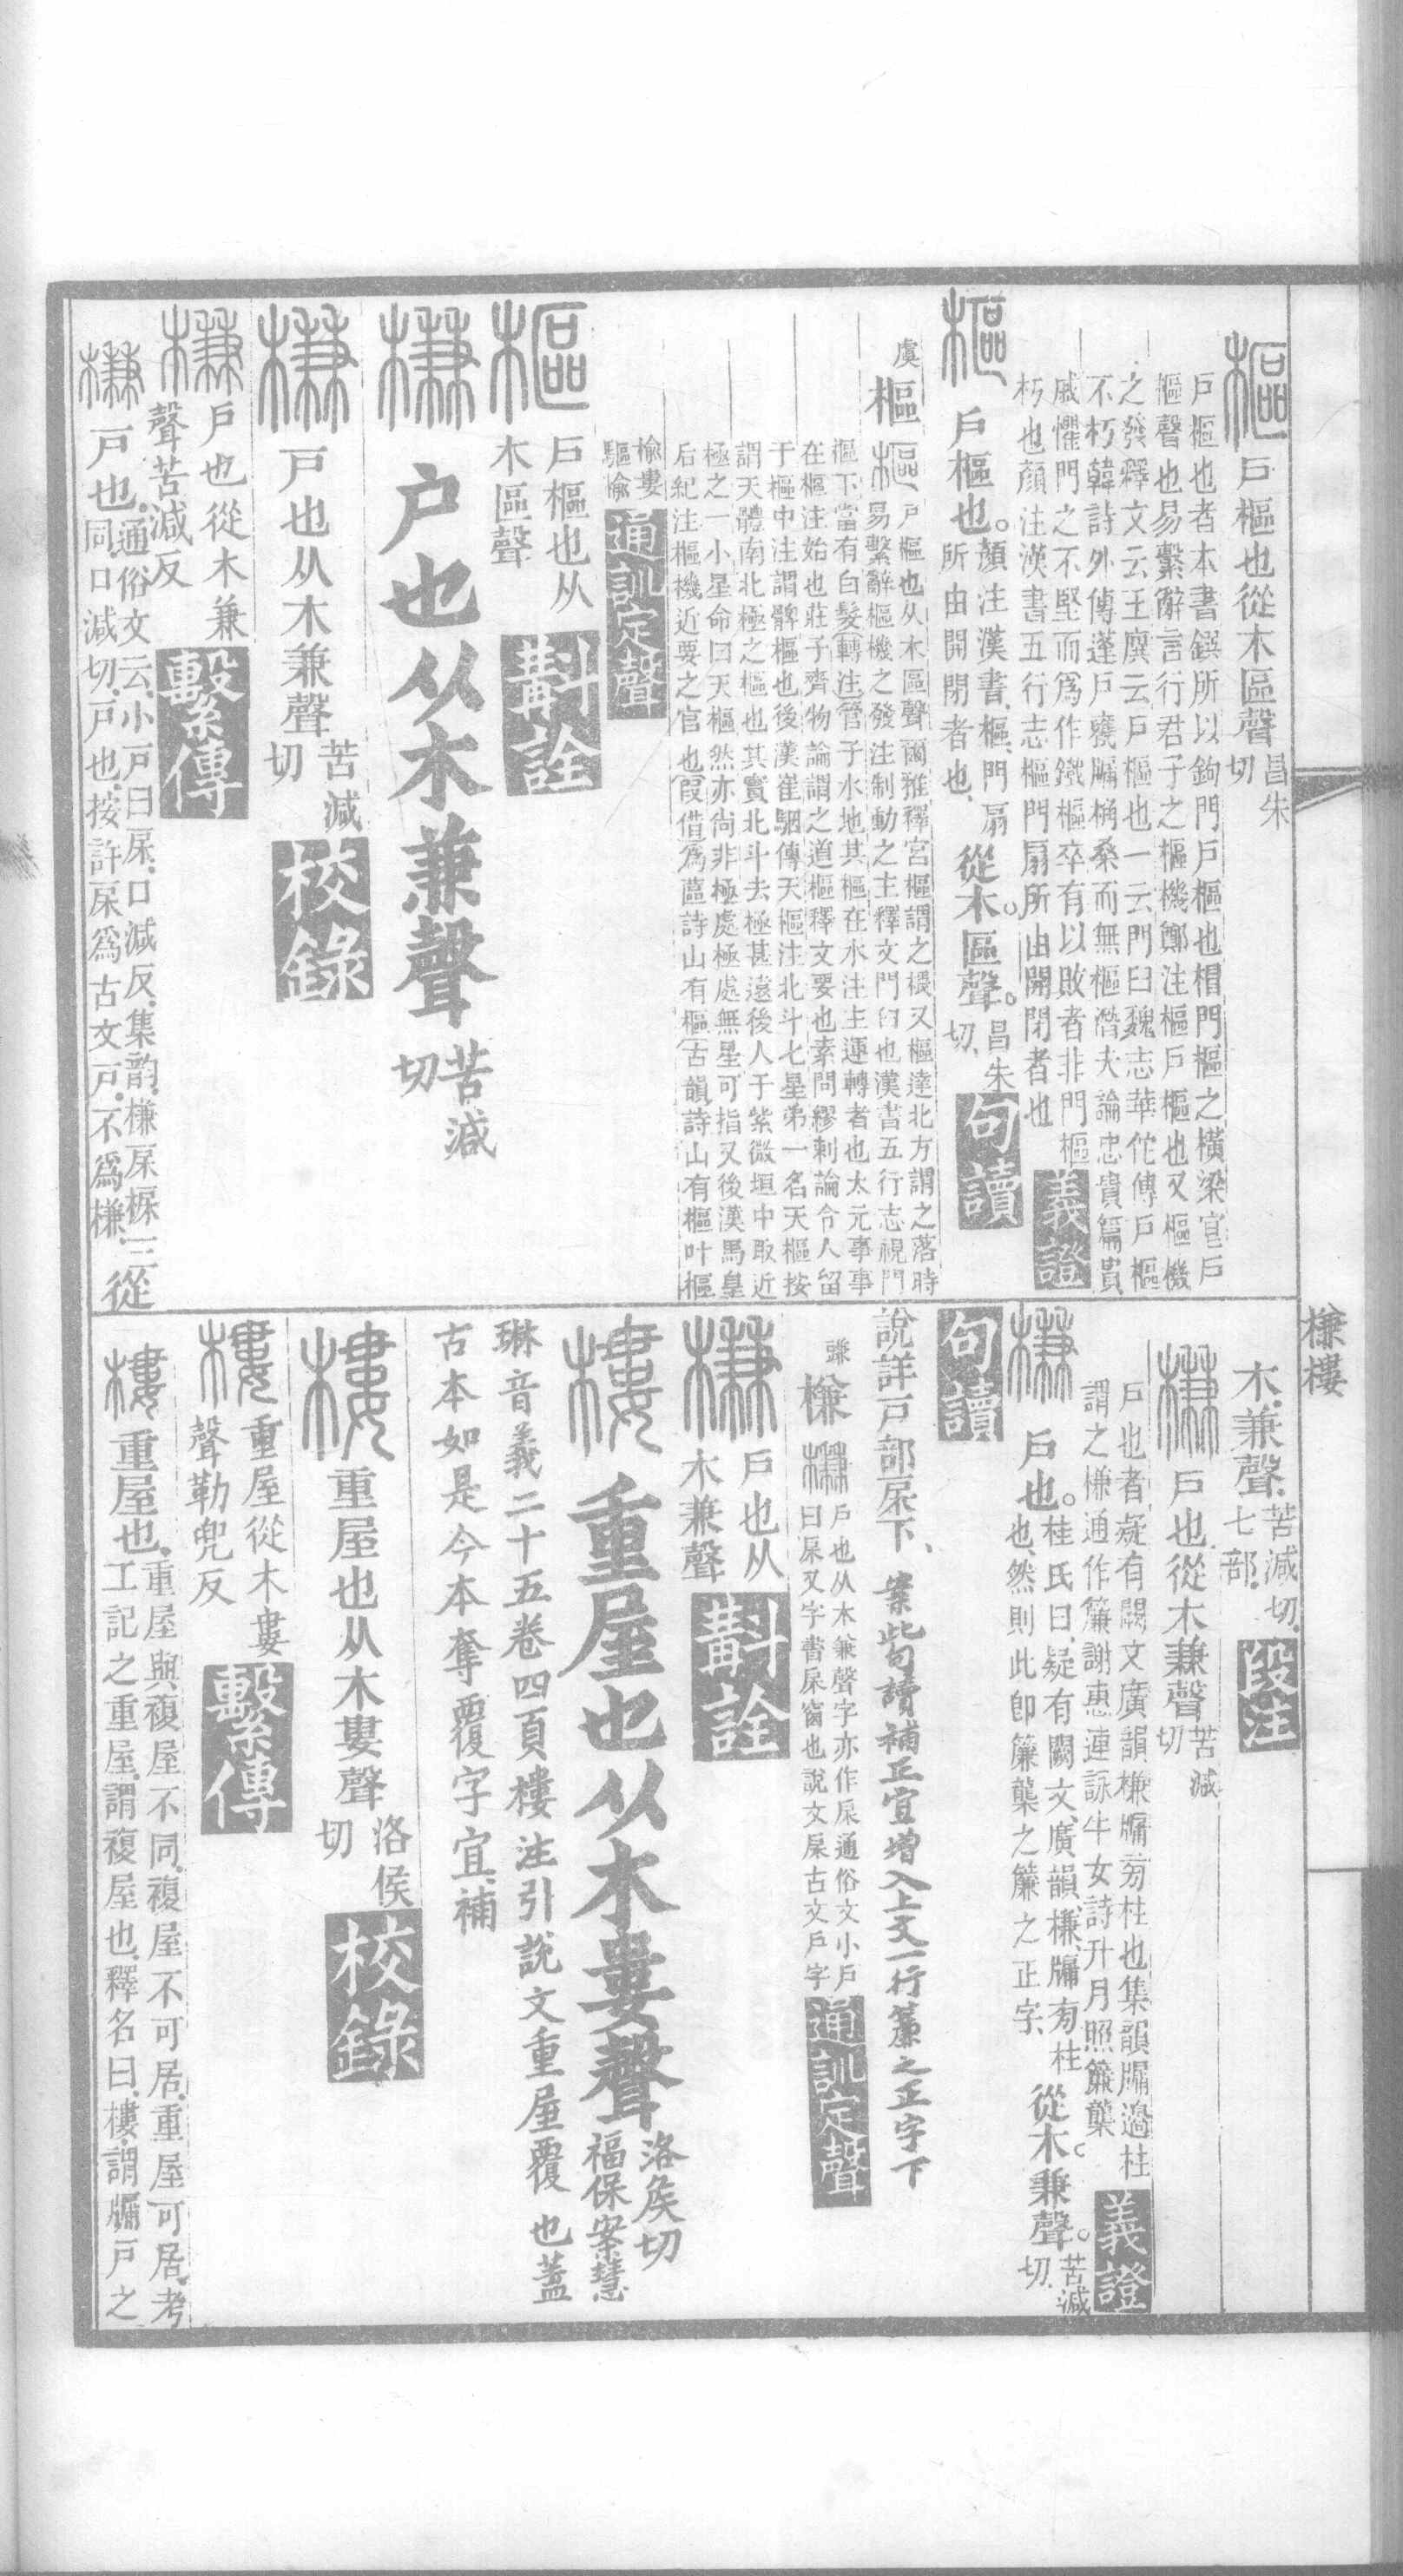 樞戶樞也從木區聲昌朱切
戶樞也者本書鐉所以鉤門戶樞也椙門樞之橫梁宦戶
樞聲也易繫辭言行君子之樞機鄭注樞戶樞也又樞機
之發釋文云王廙云戶樞也一云門臼魏志華佗傳戶樞
不朽韓詩外傳蓬戶甕牖桷桑而無樞潛夫論忠貴篇貴
戚懼門之不堅而爲作鐵樞卒有以敗者非門樞
朽也顏注漢書五行志樞門扇所由開閉者也義證
樞戶樞也。顏注漢書、樞、門扇所由開閉者也、從木。區聲。昌朱切、句讀
虞樞樞戶樞也从木區聲爾雅釋宮樞謂之椳又樞達北方謂之落時
易繫辭樞機之發注制動之主釋文門臼也漢書五行志視門
樞下當有白髮轉注管子水地其樞在水注主運轉者也太元事事
在樞注始也莊子齊物論謂之道樞釋文要也素問繆刺論令人留
于樞中注謂髀樞也後漢崔駰傳天樞注北斗七星弟一名天樞按
謂天體南北極之樞也其實北斗去極甚遠後人于紫微垣中取近
極之一小星命曰天樞然亦尚非極處極處無星可指又後漢馬皇
后紀注樞機近要之官也叚借爲蓲詩山有樞古韻詩山有樞叶樞
榆婁驅榆通訓定聲
樞戶樞也从木區聲斠詮
槏戶也从木兼聲苦減切
槏戶也从木兼聲苦減切校錄
槏戶也從木兼聲苦減反繫傳
槏戶也、通俗文云、小戶曰㡘、口減反、集韵、槏㡘㮰三同口減切、戶也、按許㡘爲古文戶、不爲槏、從
槏樓
木、兼聲、苦減切、七部、段注
槏戶也從木兼聲苦減切
戶也者疑有闕文廣韻槏牖旁柱也集韻牖邊柱
謂之槏通作簾謝惠連詠牛女詩升月照簾櫳義證
槏戶也。桂氏曰、疑有闕文、廣韻、槏、牖旁柱也、然則此卽簾櫳之簾之正字、從木。兼聲。苦減切、
句讀
說詳戶部㡘下、案此句讀補正宜增入上文一行簾之正字下
謙槏槏戶也从木兼聲字亦作㡘通俗文小戶曰㡘又字書㡘窗也說文㡘古文戶字通訓定聲
槏戶也从木兼聲斠詮
樓重屋也从木婁聲洛矦切福保案慧
琳音義二十五卷四頁樓注引說文重屋覆也蓋
古本如是今本奪覆字宜補
樓重屋也从木婁聲洛侯切校錄
樓重屋從木婁聲勒兜反繫傳
樓重屋也、重屋與複屋不同、複屋不可居、重屋可居、考工記之重屋、謂複屋也、釋名曰、樓、謂牖戶之